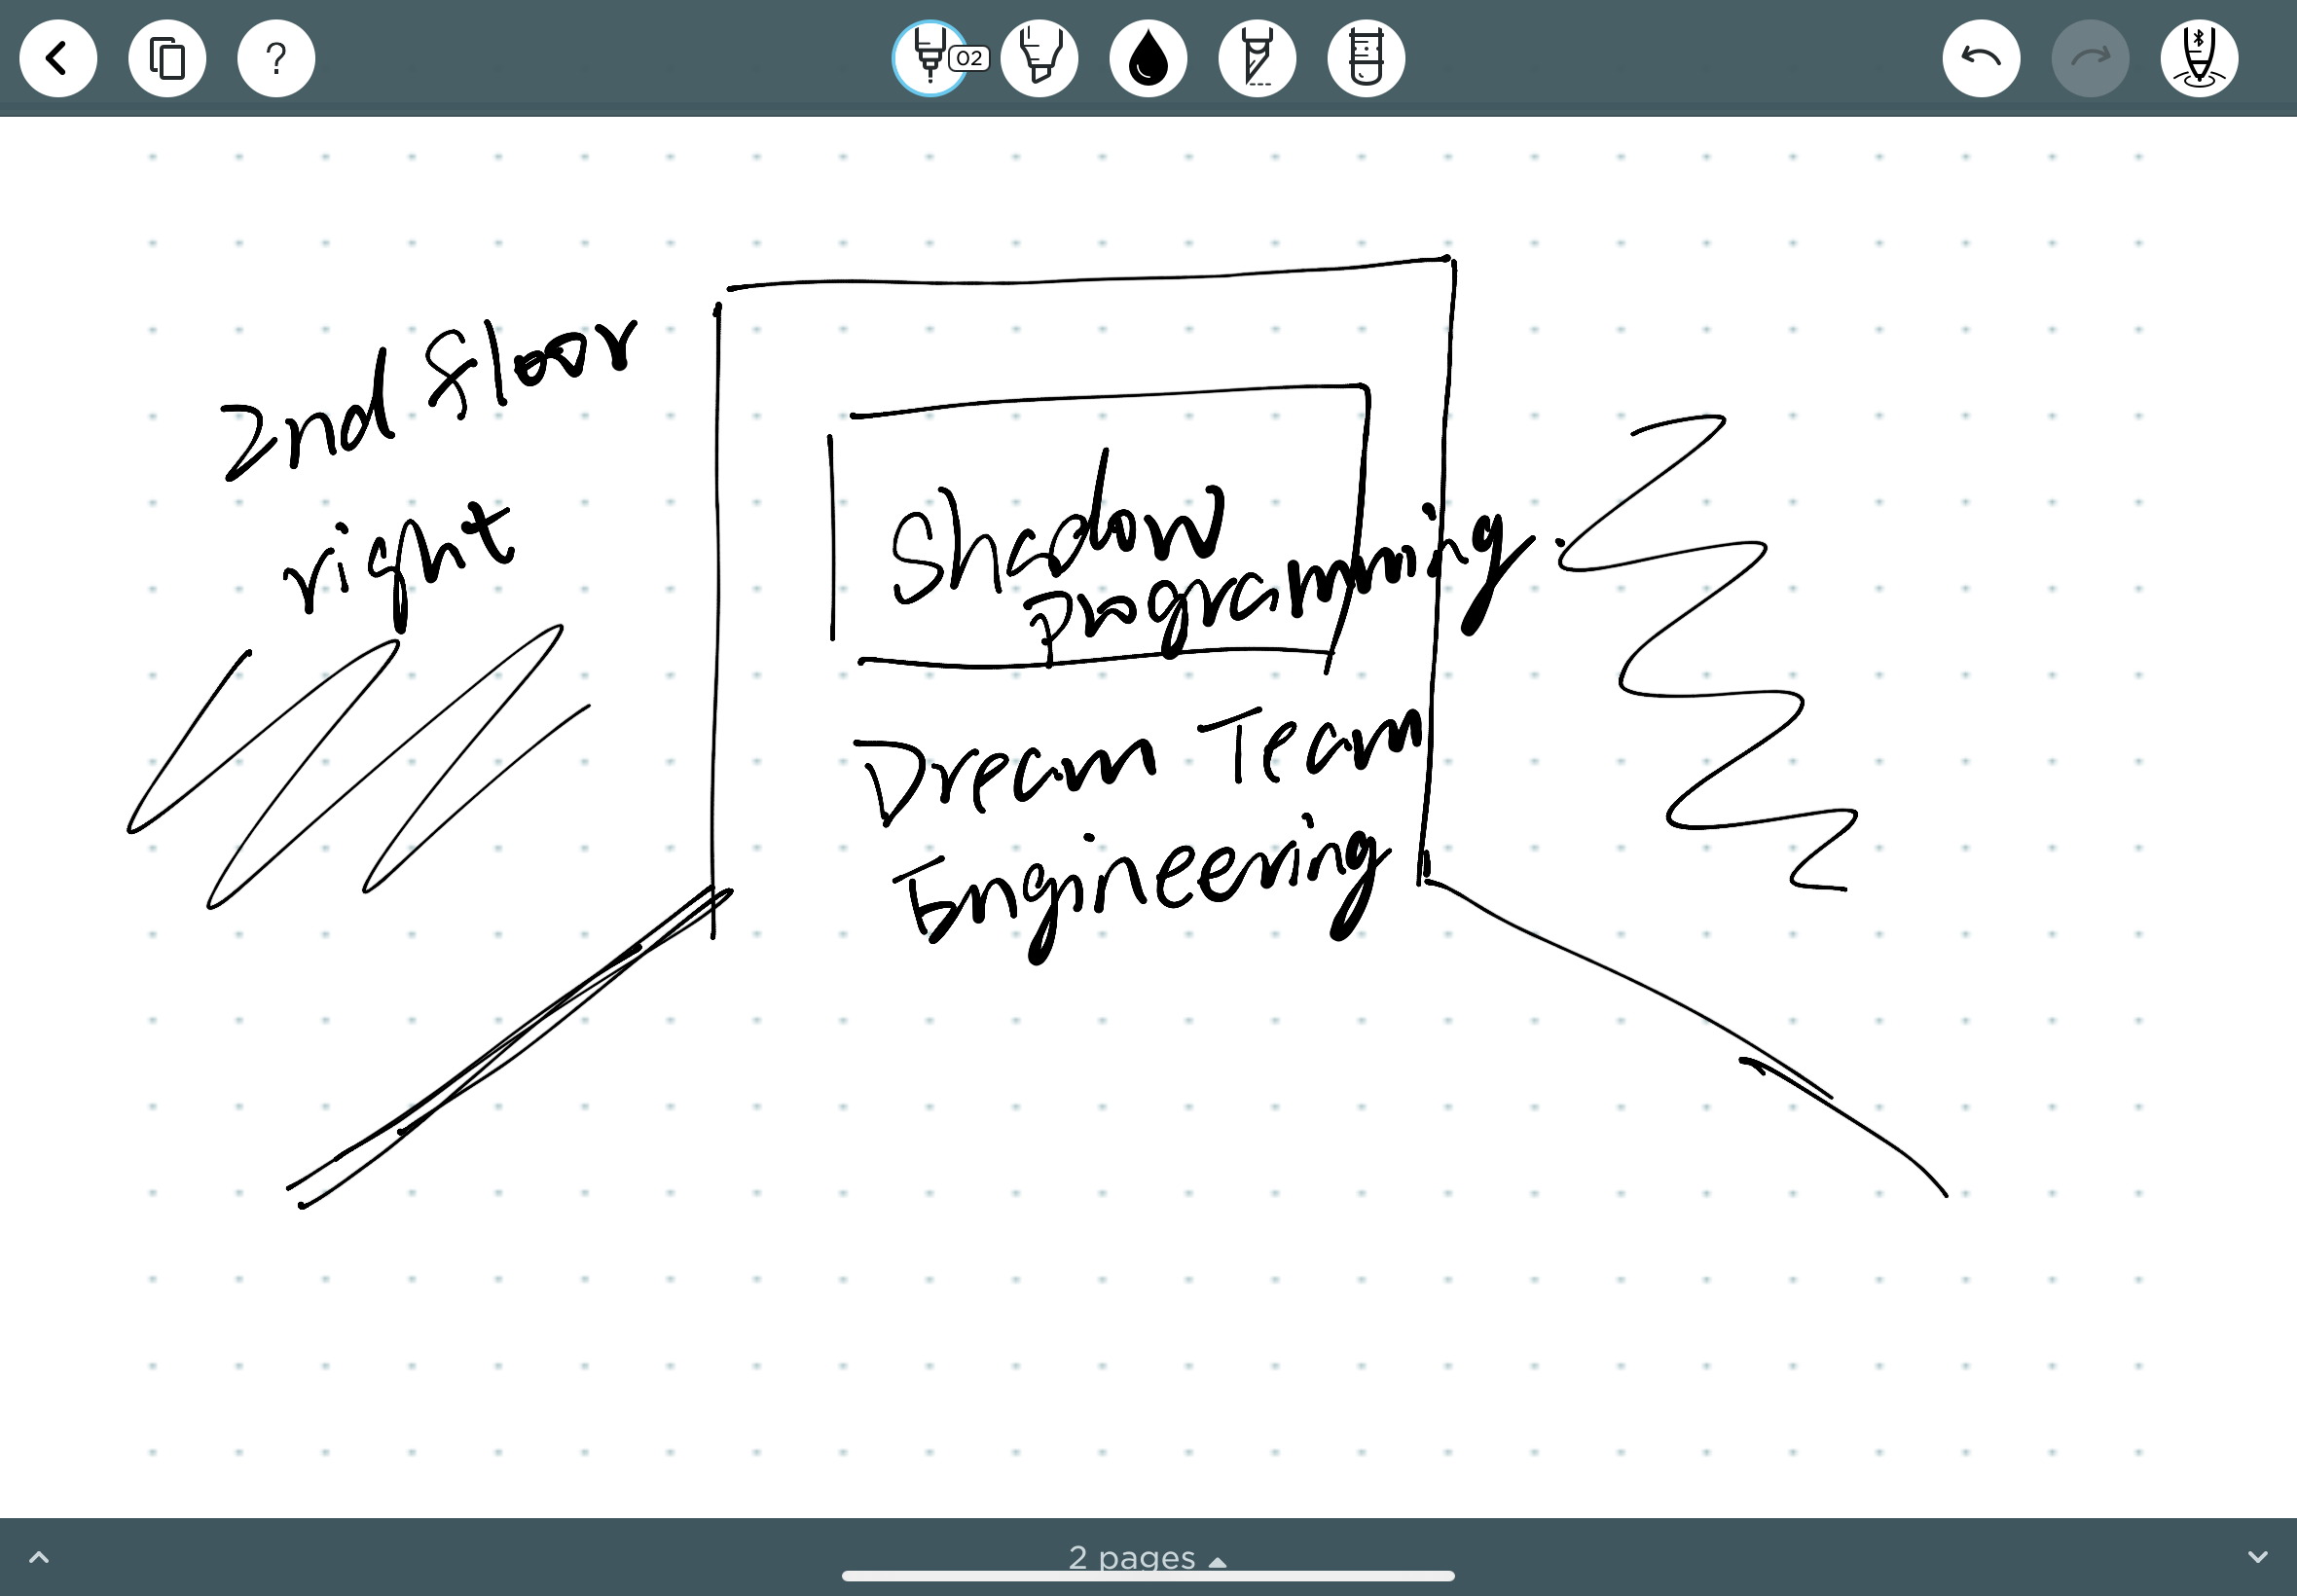 02
2nd floor
right
Shadow
Programming
Dream Team
Engineering
2 pages